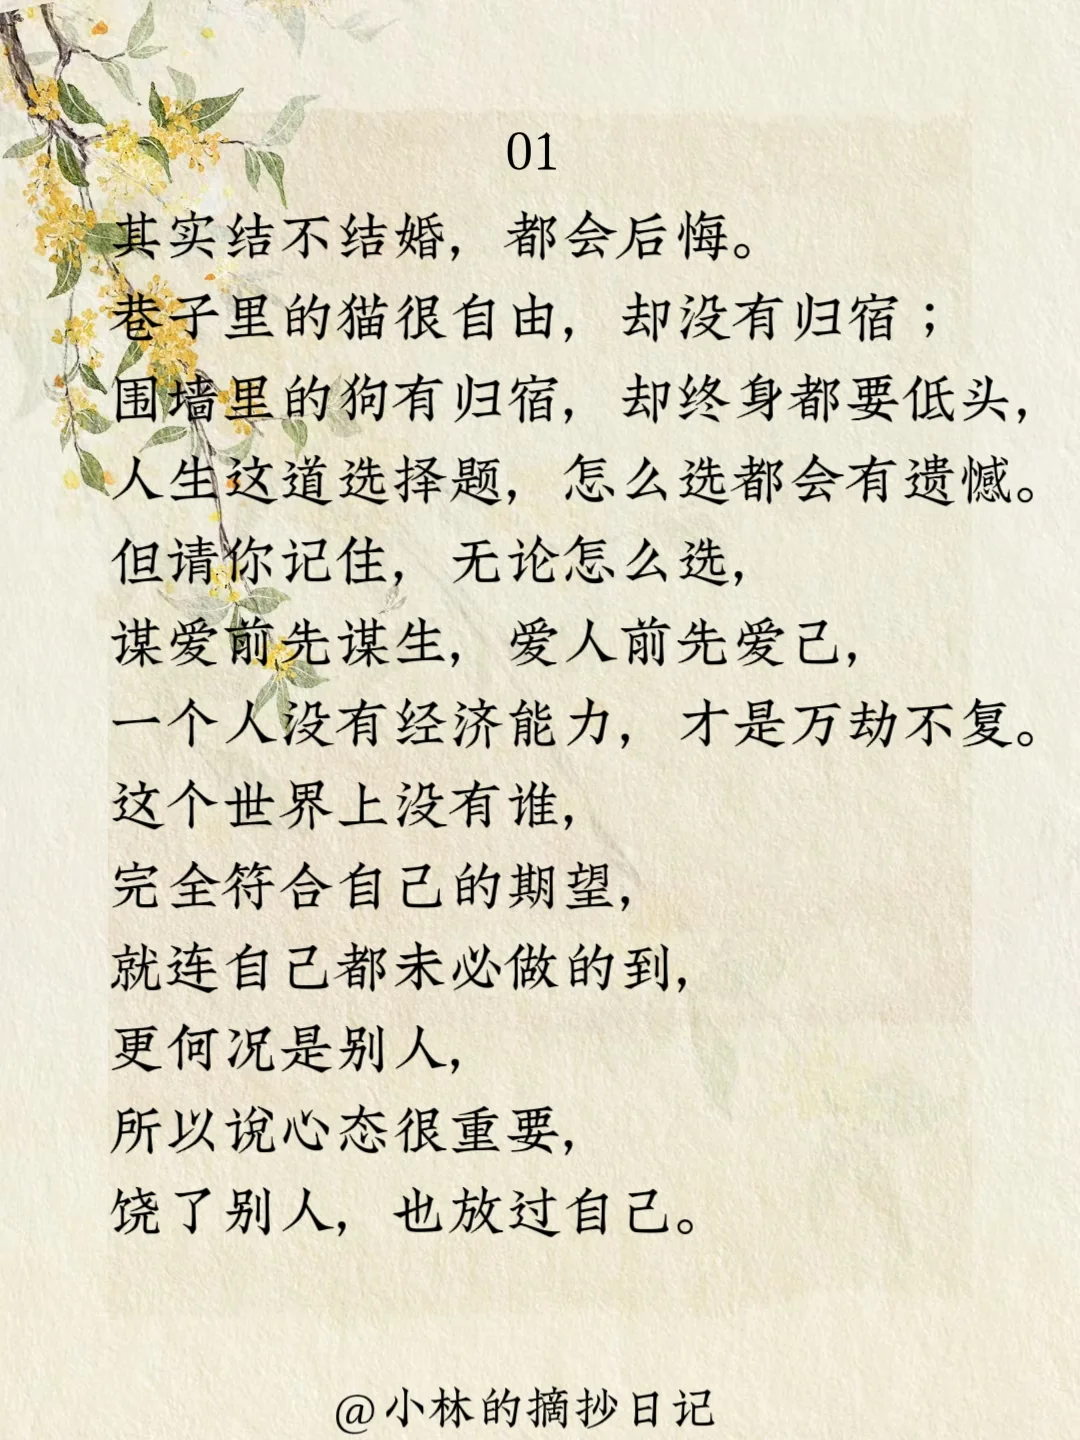 01
其实结不结婚，都会后悔。
巷子里的猫很自由，却没有归宿；
围墙里的狗有归宿，却终身都要低头，
人生这道选择题，怎么选都会有遗憾。
但请你记住，无论怎么选，
谋爱前先谋生，爱人前先爱己，
一个人没有经济能力，才是万劫不复。
这个世界上没有谁，
完全符合自己的期望，
就连自己都未必做的到，
更何况是别人，
所以说心态很重要，
饶了别人，也放过自己。
@小林的摘抄日记